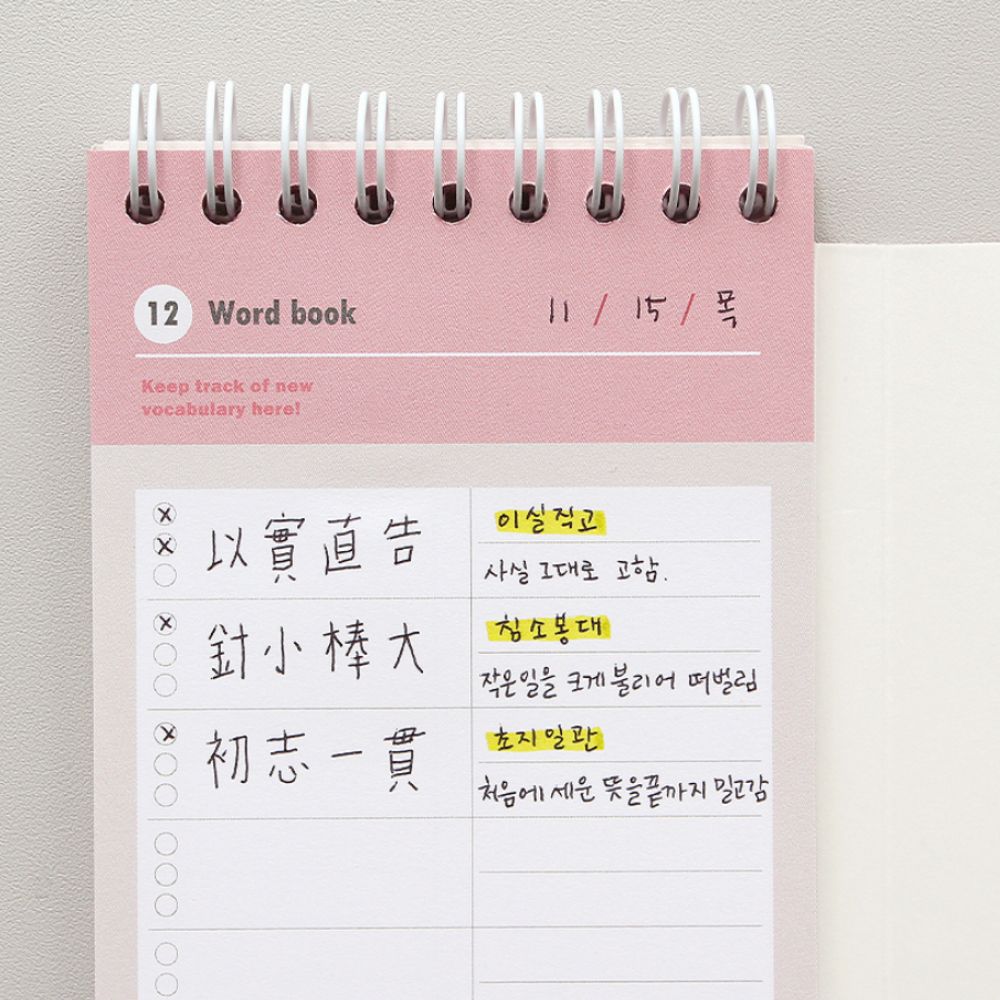 12 Word book 11 / 15 / 목
Keep track of new
vocabulary here!
以實直告 이실직고
사실 그대로 고함.
針小棒大 침소봉대
작은일을 크게 불리어 떠벌림
初志一貫 초지일관
처음에 세운 뜻을 끝까지 밀고감